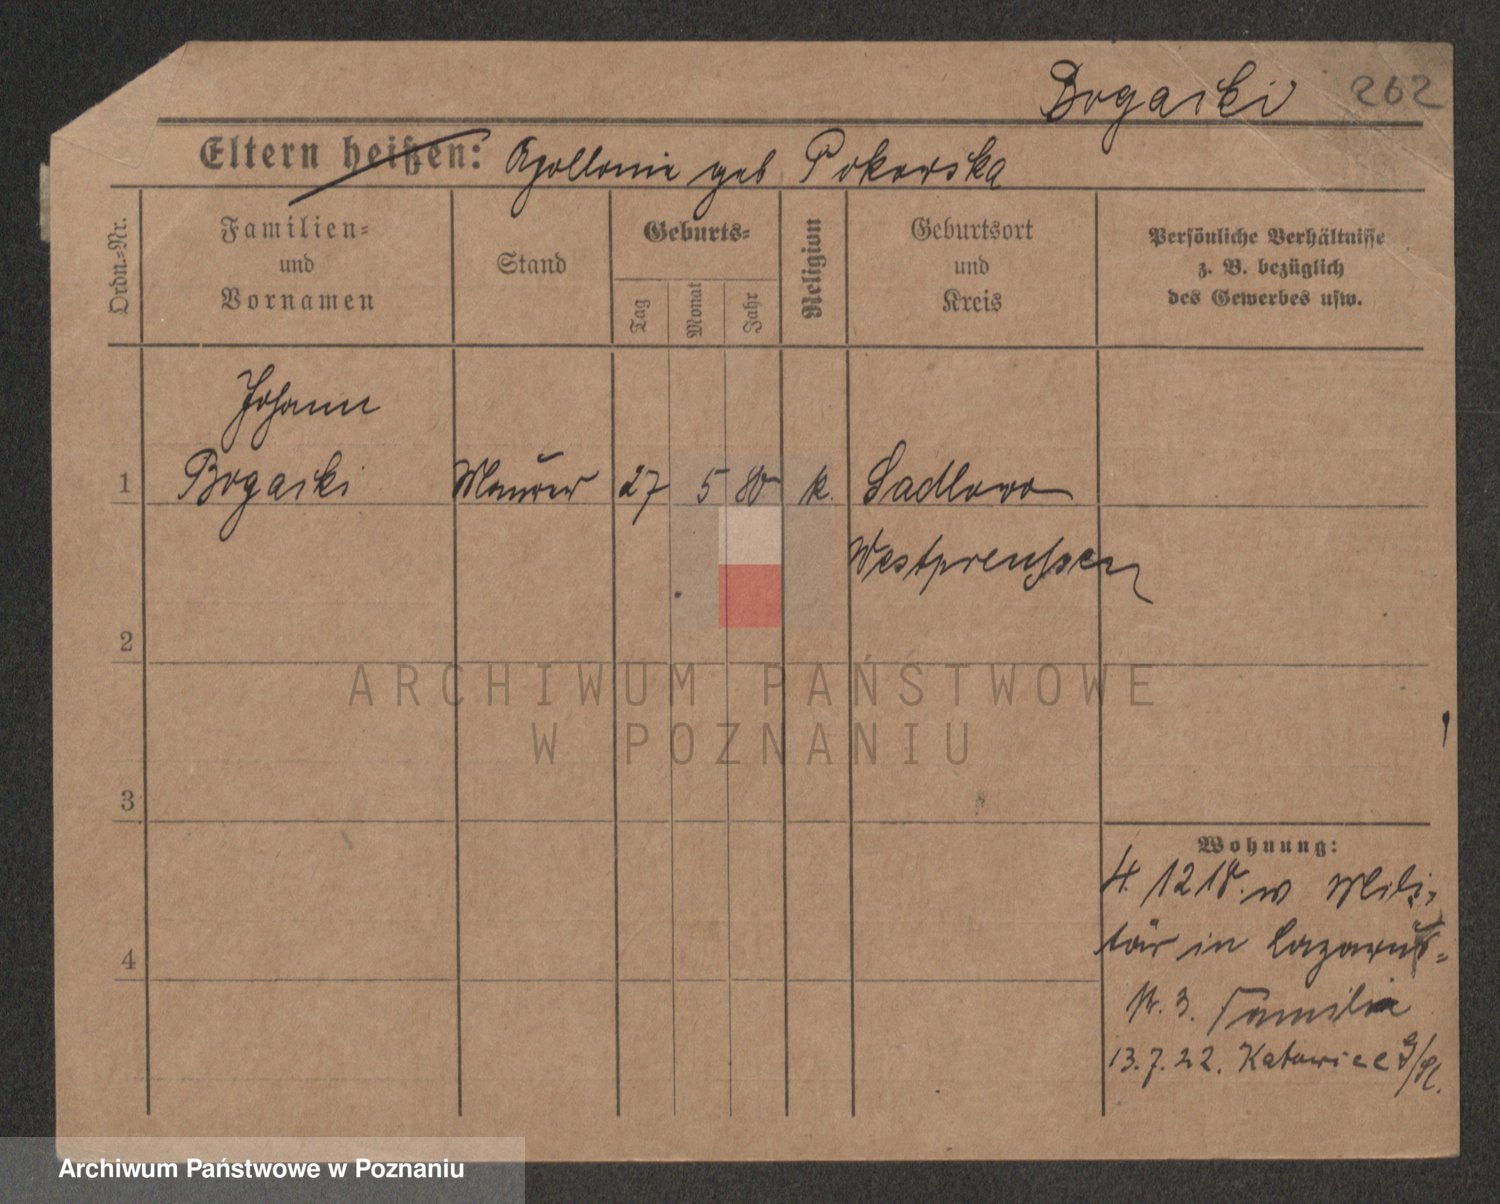 Bogaski 262
Eltern heißen: Apollonie geb Pokorska
Ordn.-Nr.
Familien-
und
Vornamen
Stand
Geburts-
Tag
Monat
Jahr
Religion
Geburtsort
und
Kreis
Persönliche Verhältnisse
z. B. bezüglich
des Gewerbes usw.
Johann
1 Bogaski Maurer 27 5 80 k. Sadlowo
Westpreußen
2
3
4
Wohnung:
4. 12 18. w Mili-
tär in Lazarus-
Nr. 3. Familie
13. 7. 22. Katowice
ARCHIWUM PAŃSTWOWE
W POZNANIU
Archiwum Państwowe w Poznaniu